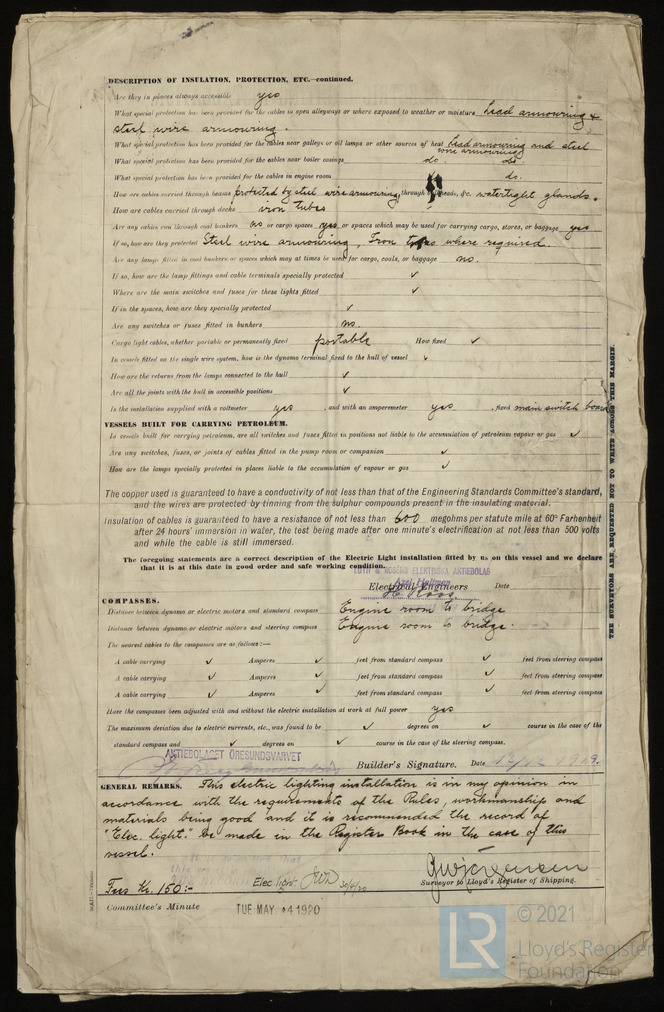 DESCRIPTION OF INSULATION, PROTECTION, ETC.—continued.
Are they in places always accessible yes
What special protection has been provided for the cables in open alleyways or where exposed to weather or moisture Lead armouring &
steel wire armouring.
What special protection has been provided for the cables near galleys or oil lamps or other sources of heat Lead armouring and steel
wire armouring
What special protection has been provided for the cables near boiler casings do. do.
What special protection has been provided for the cables in engine room do.
How are cables carried through beams protected by steel wire armouring, through &c. watertight glands.
How are cables carried through decks iron tubes
Are any cables run through coal bunkers no or cargo spaces yes or spaces which may be used for carrying cargo, stores, or baggage yes
If so, how are they protected Steel wire armouring, Iron where required.
Are any lamps fitted in coal bunkers or spaces which may at times be used for cargo, coals, or baggage no.
If so, how are the lamp fittings and cable terminals specially protected ✓
Where are the main switches and fuses for these lights fitted ✓
If in the spaces, how are they specially protected ✓
Are any switches or fuses fitted in bunkers no.
Cargo light cables, whether portable or permanently fixed portable How fixed ✓
In vessels fitted on the single wire system, how is the dynamo terminal fixed to the hull of vessel ✓
How are the returns from the lamps connected to the hull ✓
Are all the joints with the hull in accessible positions ✓
Is the installation supplied with a voltmeter yes , and with an amperemeter yes , fixed main switch board
VESSELS BUILT FOR CARRYING PETROLEUM.
In vessels built for carrying petroleum, are all switches and fuses fitted in positions not liable to the accumulation of petroleum vapour or gas ✓
Are any switches, fuses, or joints of cables fitted in the pump room or companion ✓
How are the lamps specially protected in places liable to the accumulation of vapour or gas ✓
The copper used is guaranteed to have a conductivity of not less than that of the Engineering Standards Committee's standard,
and the wires are protected by tinning from the sulphur compounds present in the insulating material.
Insulation of cables is guaranteed to have a resistance of not less than 600 megohms per statute mile at 60° Farhenheit
after 24 hours' immersion in water, the test being made after one minute's electrification at not less than 500 volts
and while the cable is still immersed.
The foregoing statements are a correct description of the Electric Light installation fitted by us on this vessel and we declare
that it is at this date in good order and safe working condition.
LUTH & ROSÉNS ELEKTRISKA AKTIEBOLAG
Electrical Engineers Date
COMPASSES.
Distance between dynamo or electric motors and standard compass Engine room to bridge
Distance between dynamo or electric motors and steering compass Engine room to bridge.
The nearest cables to the compasses are as follows:—
A cable carrying ✓ Amperes ✓ feet from standard compass ✓ feet from steering compass
A cable carrying ✓ Amperes ✓ feet from standard compass ✓ feet from steering compass
A cable carrying ✓ Amperes ✓ feet from standard compass ✓ feet from steering compass
Have the compasses been adjusted with and without the electric installation at work at full power yes
The maximum deviation due to electric currents, etc., was found to be ✓ degrees on ✓ course in the case of the
standard compass and ✓ degrees on ✓ course in the case of the steering compass.
AKTIEBOLAGET ÖRESUNDSVARVET
Builder's Signature. Date 1919.
GENERAL REMARKS. This electric lighting installation is in my opinion in
accordance with the requirements of the Rules, workmanship and
materials being good and it is recommended the record of
"Elec. light." be made in the Register Book in the case of this
vessel.
Surveyor to Lloyd's Register of Shipping.
Fees Kr. 150:- Elec light
Committee's Minute TUE MAY 4 1920
THE SURVEYORS ARE REQUESTED NOT TO WRITE ACROSS THIS MARGIN.
LR
© 2021
Lloyd's Register
Foundation